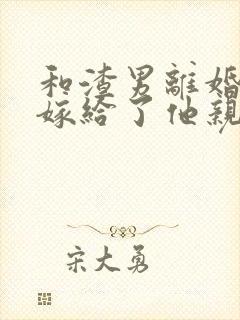 和渣男離婚
嫁給了他親
宋大勇